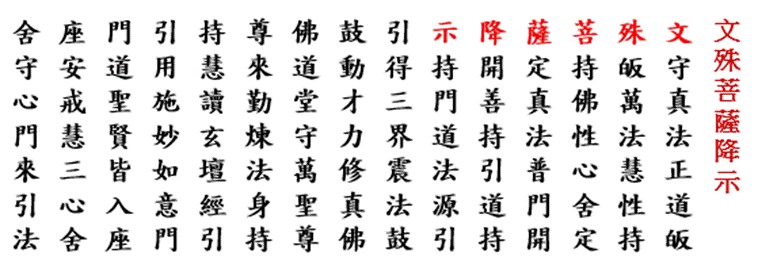 文殊菩薩降示
文守真法正道皈
殊皈萬法慧性持
菩持佛性心舍定
薩定真法普門開
降開善持引道持
示持門道法源引
引得三界震法鼓
鼓動才力修真佛
佛道堂守萬聖尊
尊來勤煉法身持
持慧讀玄壇經引
引用施妙如意門
門道聖賢皆入座
座安戒慧三心舍
舍守心門來引法